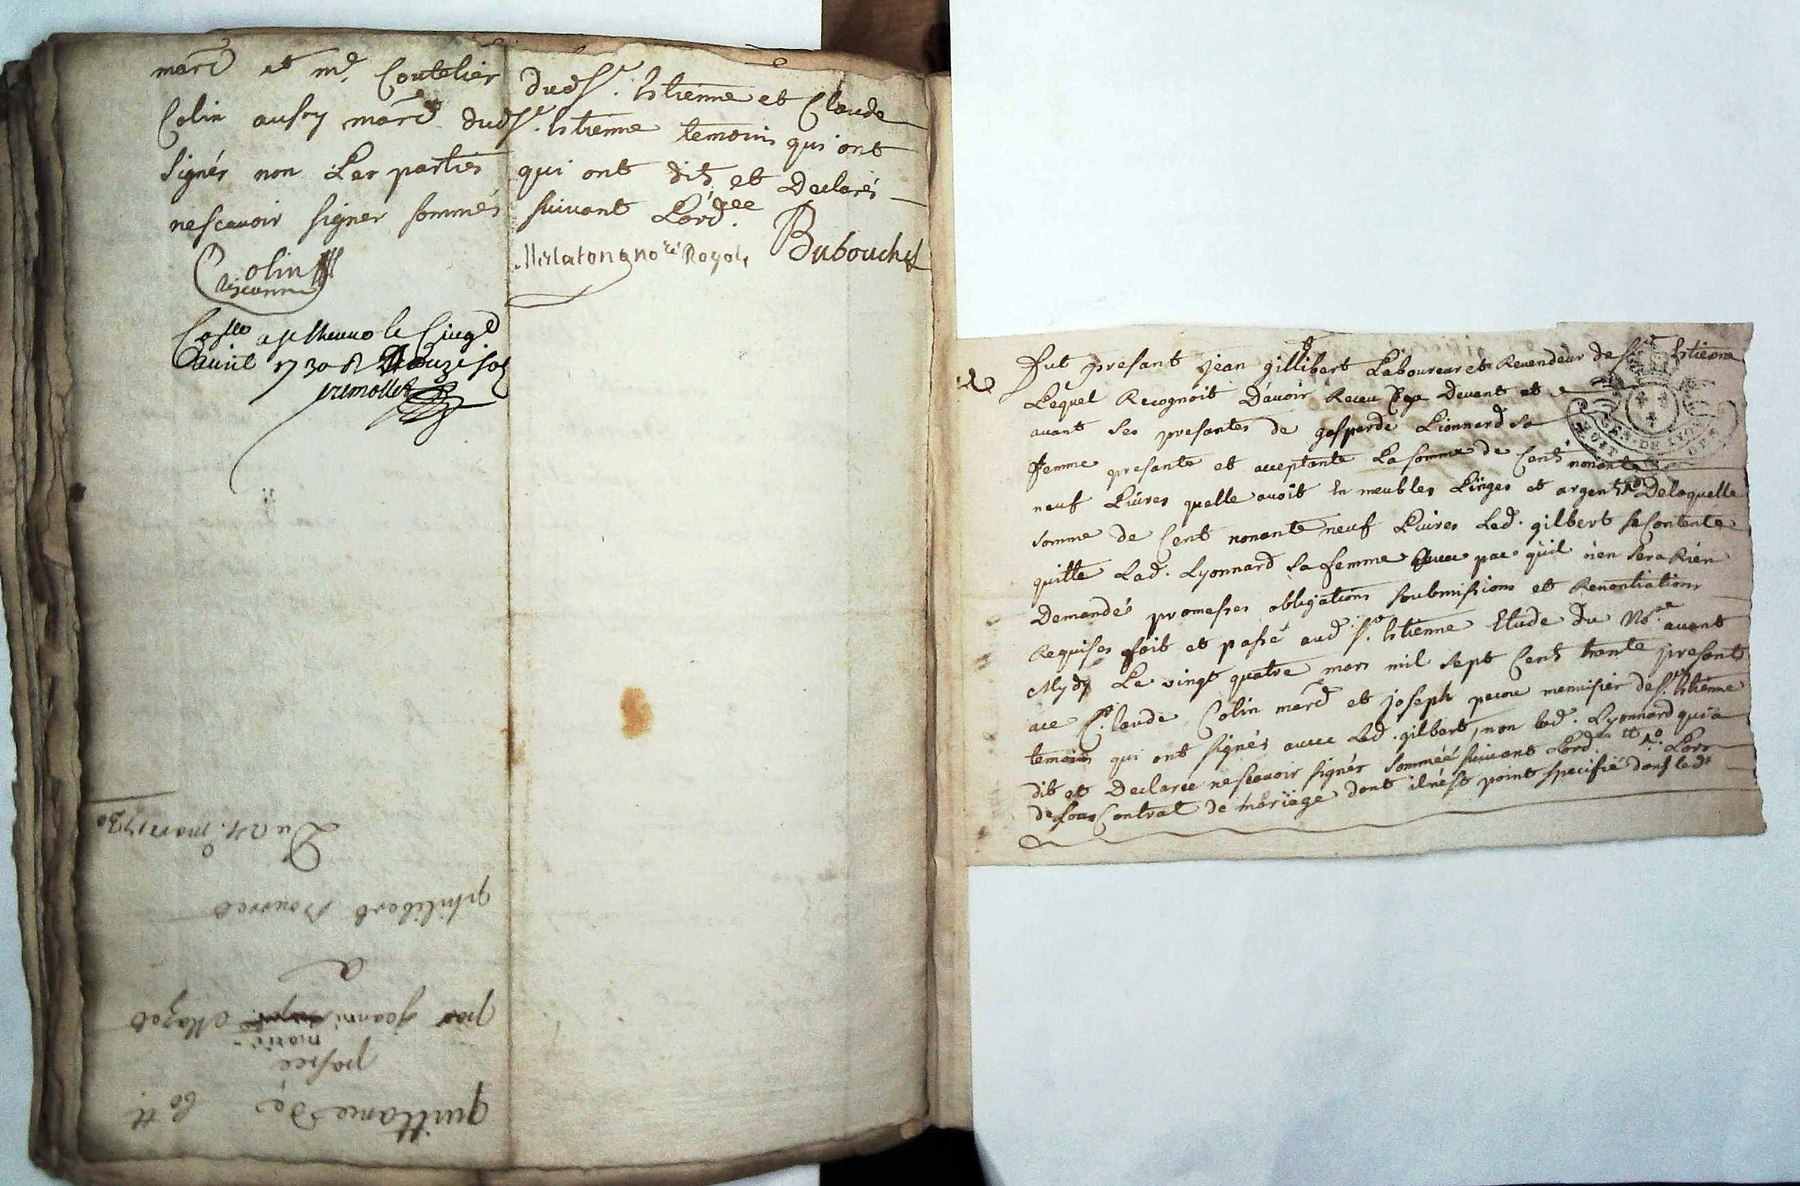 marc̃d et mᵉ Coutelier dudSʳ. Estienne et Claude
Colin aussy marc̃d dudSʳ. Estienne temoins qui ont
signés non Les parties qui ont dit et Declarés
nescavoir signer sommés suivant Lord.ᵉᵉ
Colin
Merlaton nore Royal
Dubouchet
a st Etienne le Cinq
avril 1730 R douze sols
quittance de 60 tt
passee
par Jeanne marie Mazet
a
philibert
Du 24. mars 1730
Fut presant jean gillibert Laboureur et Revendeur de St Estienne
Lequel Recognoit Davoir Receu Cy Devant et
avant Ses presantes de gasparde Lionnard sa
femme presante et acceptante La somme de Cent nonante
neuf Livres quelle avoit En meubles Linges et argent Delaquelle
somme de Cent nonante neuf Livres Led. gilbert se Contente
quitte Lad. Lyonnard sa femme avec pac quil n'en sera Rien
Demandés promesses obligations soubmissions et Renontiations
Requises fait et passé aud St. Estienne Etude du Nore avant
Mydy Le vingt quatre mars mil sept Cent trante presant
ace Claude Colin marcd et joseph menusier de St. Estienne
temoins qui ont signés avec Led. gilbert, non lad. Lyonnard qui a
dit et Declaree nescavoir signér sommée suivant Lord. Lors
de Contrat de mariage dont il n'est point specifié dans led
GEN. DE LYON